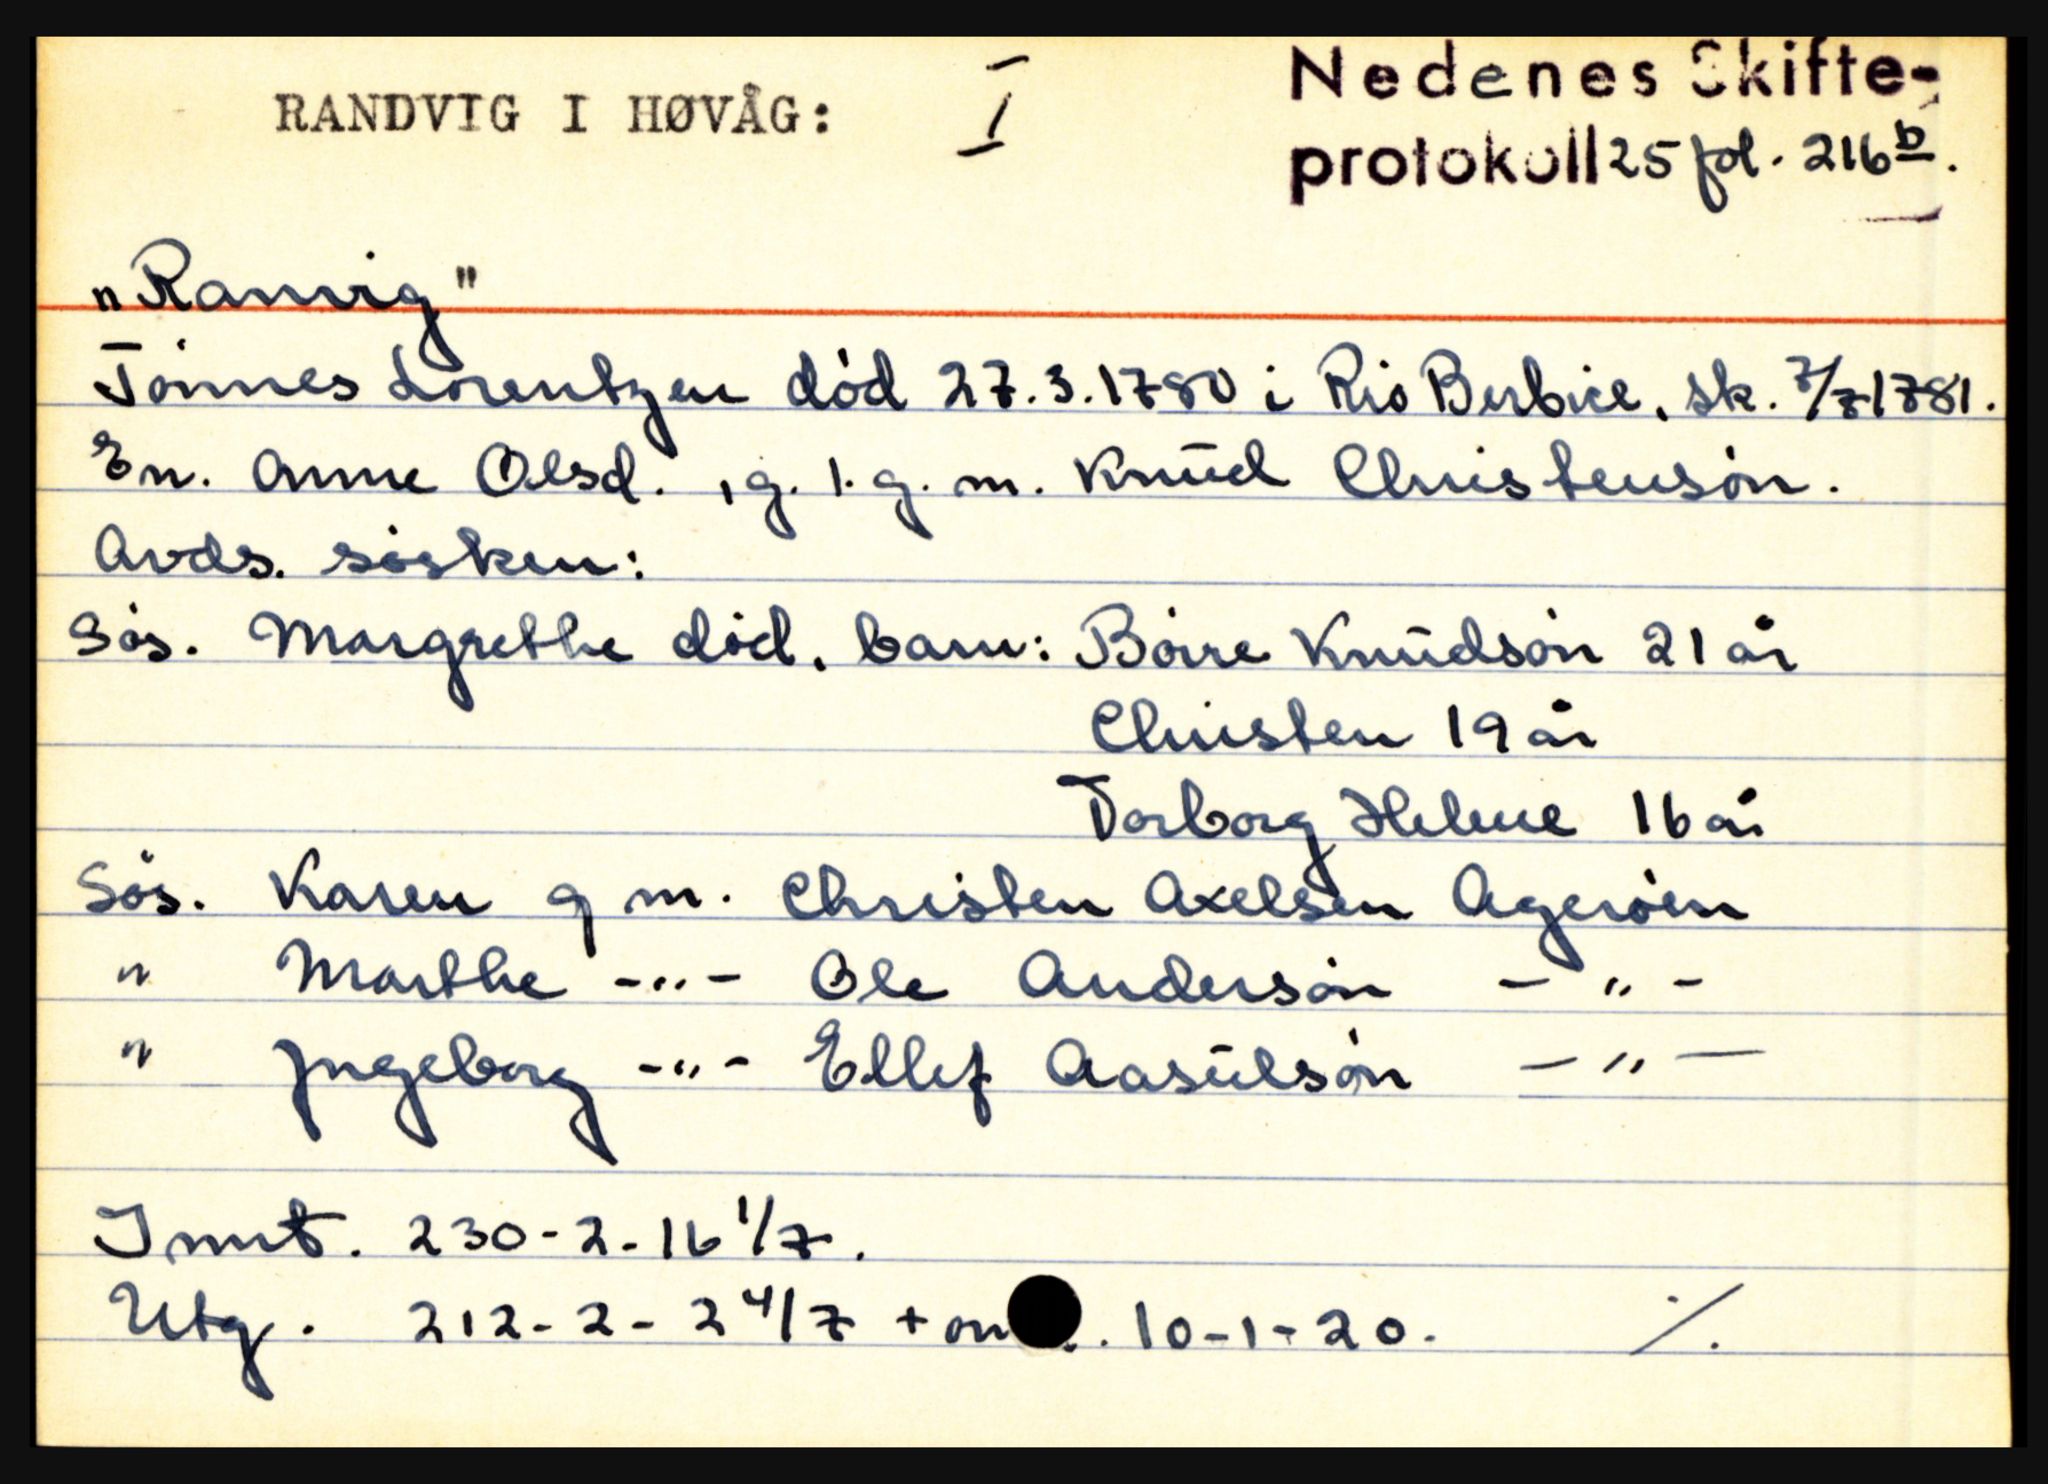 RANDVIG I HØVÅG: I
Nedenes Skifte-
protokoll 25 fol. 216 b.
"Ranvig"
Tönnes Lorentzen död 27.3.1780 i Rio Berbice, sk. 7/7 1781.
En. Anne Olsd. , g. 1. g. m. Knud Christensön.
Avds. sösken:
Sös. Margrethe död, barn: Börre Knudsön 21 år
Christen 19 år
Torborg Helene 16 år
Sös. Karen g m. Christen Axelsen Ageröen
" Marthe -"- Ole Andersön - " -
" Jngeborg -"- Ellef Aasulsön - " -
Innt. 230-2-16 1/7.
Utg. 212-2-2 4/7 + 10-1-20. ⁒